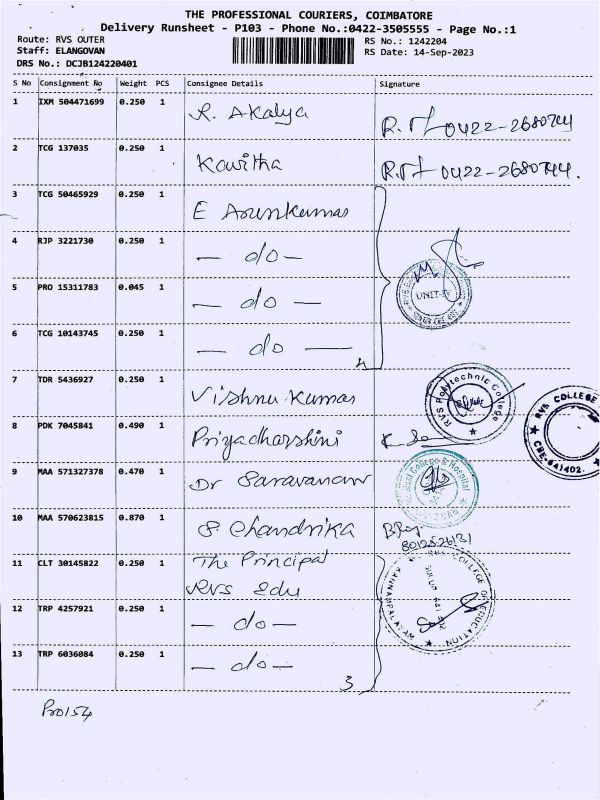 THE PROFESSIONAL COURIERS, COIMBATORE
Delivery Runsheet - P103 - Phone No.:0422-3505555 - Page No.:1
Route: RVS OUTER
RS No.: 1242204
Staff: ELANGOVAN
RS Date: 14-Sep-2023
DRS No.: DCJB124220401
S No Consignment No Weight PCS Consignee Details Signature
1 IXM 504471699 0.250 1 R. Akalya
2 TCG 137035 0.250 1 Kavitha
3 TCG 50465929 0.250 1 E Arunkumar
4 RJP 3221730 0.250 1 — do —
UNIT-
5 PRO 15311783 0.045 1 — do —
6 TCG 10143745 0.250 1 — do —
4
7 TDR 5436927 0.250 1 Vishnu Kumar
RVS Polytechnic College
8 PDK 7045841 0.490 1 Priyadharshini
RVS COLLEGE
CBE-641402.
9 MAA 571327378 0.470 1 Dr Saravanan
College & Hospital
10 MAA 570623815 0.870 1 S. Chandrika
11 CLT 30145822 0.250 1 The Principal
RVS Edu
RVS COLLEGE OF EDUCATION
KANNAMPALAYAM
12 TRP 4257921 0.250 1 — do —
13 TRP 6036084 0.250 1 — do —
3
Pro154